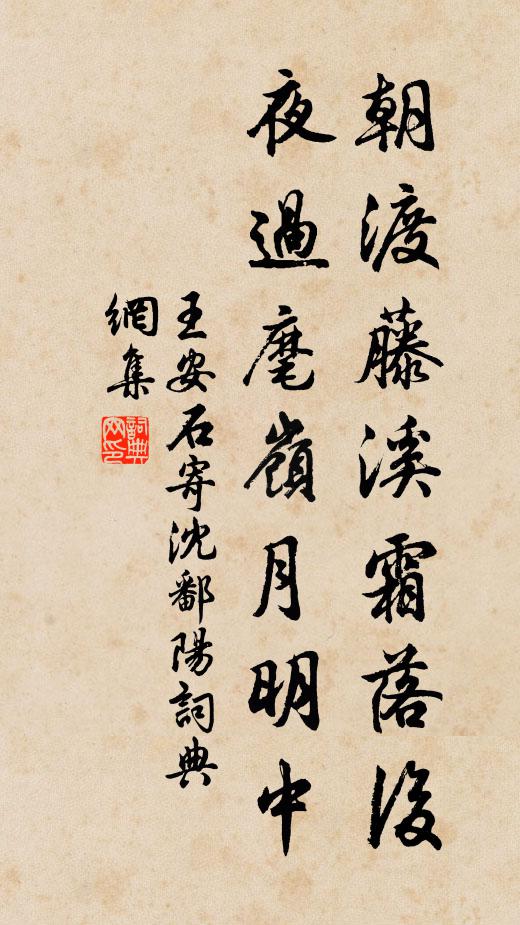 朝渡藤溪霜落後
夜過麾嶺月明中
王安石寄沈鄱陽詞典
網集
詞典
网印